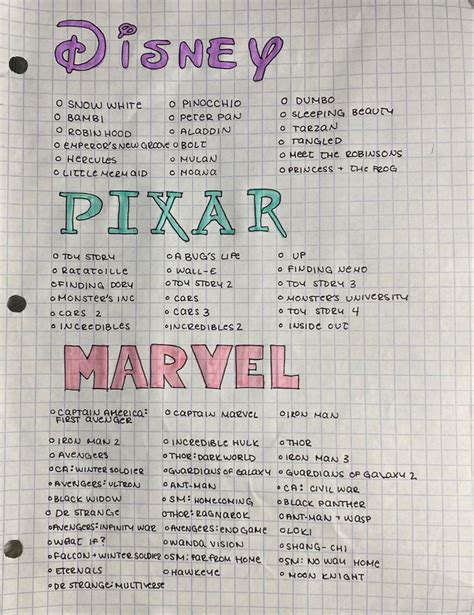 DISNEY
○ SNOW WHITE ○ PINOCCHIO ○ DUMBO
○ BAMBI ○ PETER PAN ○ SLEEPING BEAUTY
○ ROBIN HOOD ○ ALADDIN ○ TARZAN
○ EMPEROR'S NEW GROOVE ○ BOLT ○ TANGLED
○ HERCULES ○ MULAN ○ MEET THE ROBINSONS
○ LITTLE MERMAID ○ MOANA ○ PRINCESS + THE FROG
PIXAR
○ TOY STORY ○ A BUG'S LIFE ○ UP
○ RATATOILLE ○ WALL-E ○ FINDING NEMO
○ FINDING DORY ○ TOY STORY 2 ○ TOY STORY 3
○ MONSTER'S INC ○ CARS ○ MONSTER'S UNIVERSITY
○ CARS 2 ○ CARS 3 ○ TOY STORY 4
○ INCREDIBLES ○ INCREDIBLES 2 ○ INSIDE OUT
MARVEL
○ CAPTAIN AMERICA: ○ CAPTAIN MARVEL ○ IRON MAN
FIRST AVENGER
○ IRON MAN 2 ○ INCREDIBLE HULK ○ THOR
○ AVENGERS ○ THOR: DARK WORLD ○ IRON MAN 3
○ CA: WINTER SOLDIER ○ GUARDIANS OF GALAXY ○ GUARDIANS OF GALAXY 2
○ AVENGERS: ULTRON ○ ANT-MAN ○ CA: CIVIL WAR
○ BLACK WIDOW ○ SM: HOMECOMING ○ BLACK PANTHER
○ DR STRANGE ○ THOR: RAGNAROK ○ ANT-MAN + WASP
○ AVENGERS: INFINITY WAR ○ AVENGERS: END GAME ○ LOKI
○ WHAT IF? ○ WANDA VISION ○ SHANG-CHI
○ FALCON + WINTER SOLDIER ○ SM: FAR FROM HOME ○ SM: NO WAY HOME
○ ETERNALS ○ HAWKEYE ○ MOON KNIGHT
○ DR STRANGE: MULTIVERSE